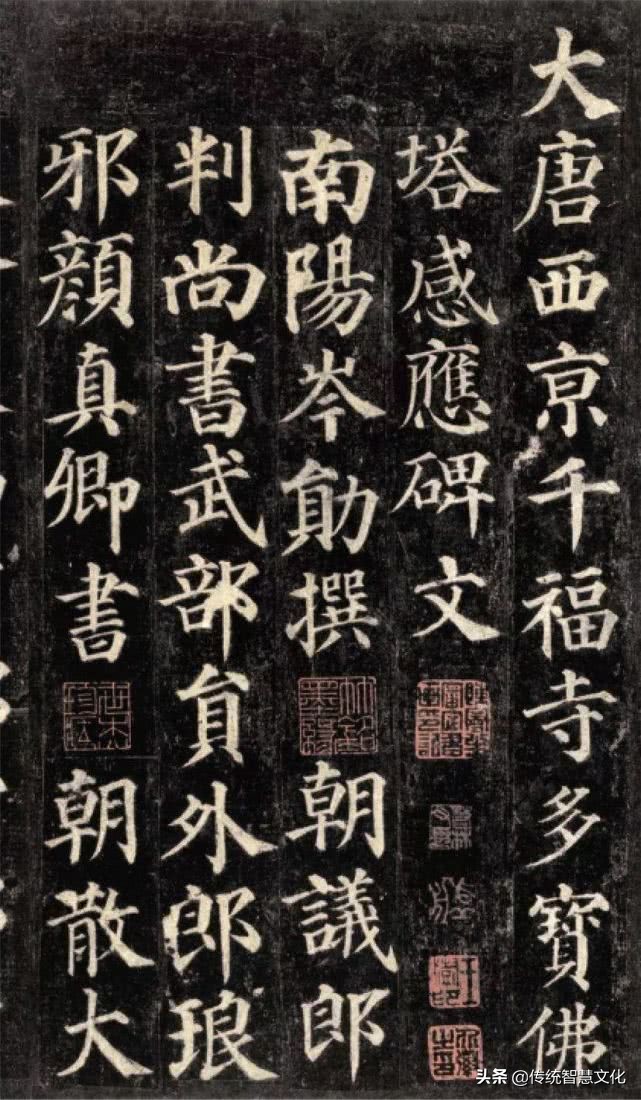 大唐西京千福寺多寶佛
塔感應碑文
南陽岑勛撰 朝議郎
判尚書武部員外郎琅
邪顏真卿書 朝散大
头条 @传统智慧文化